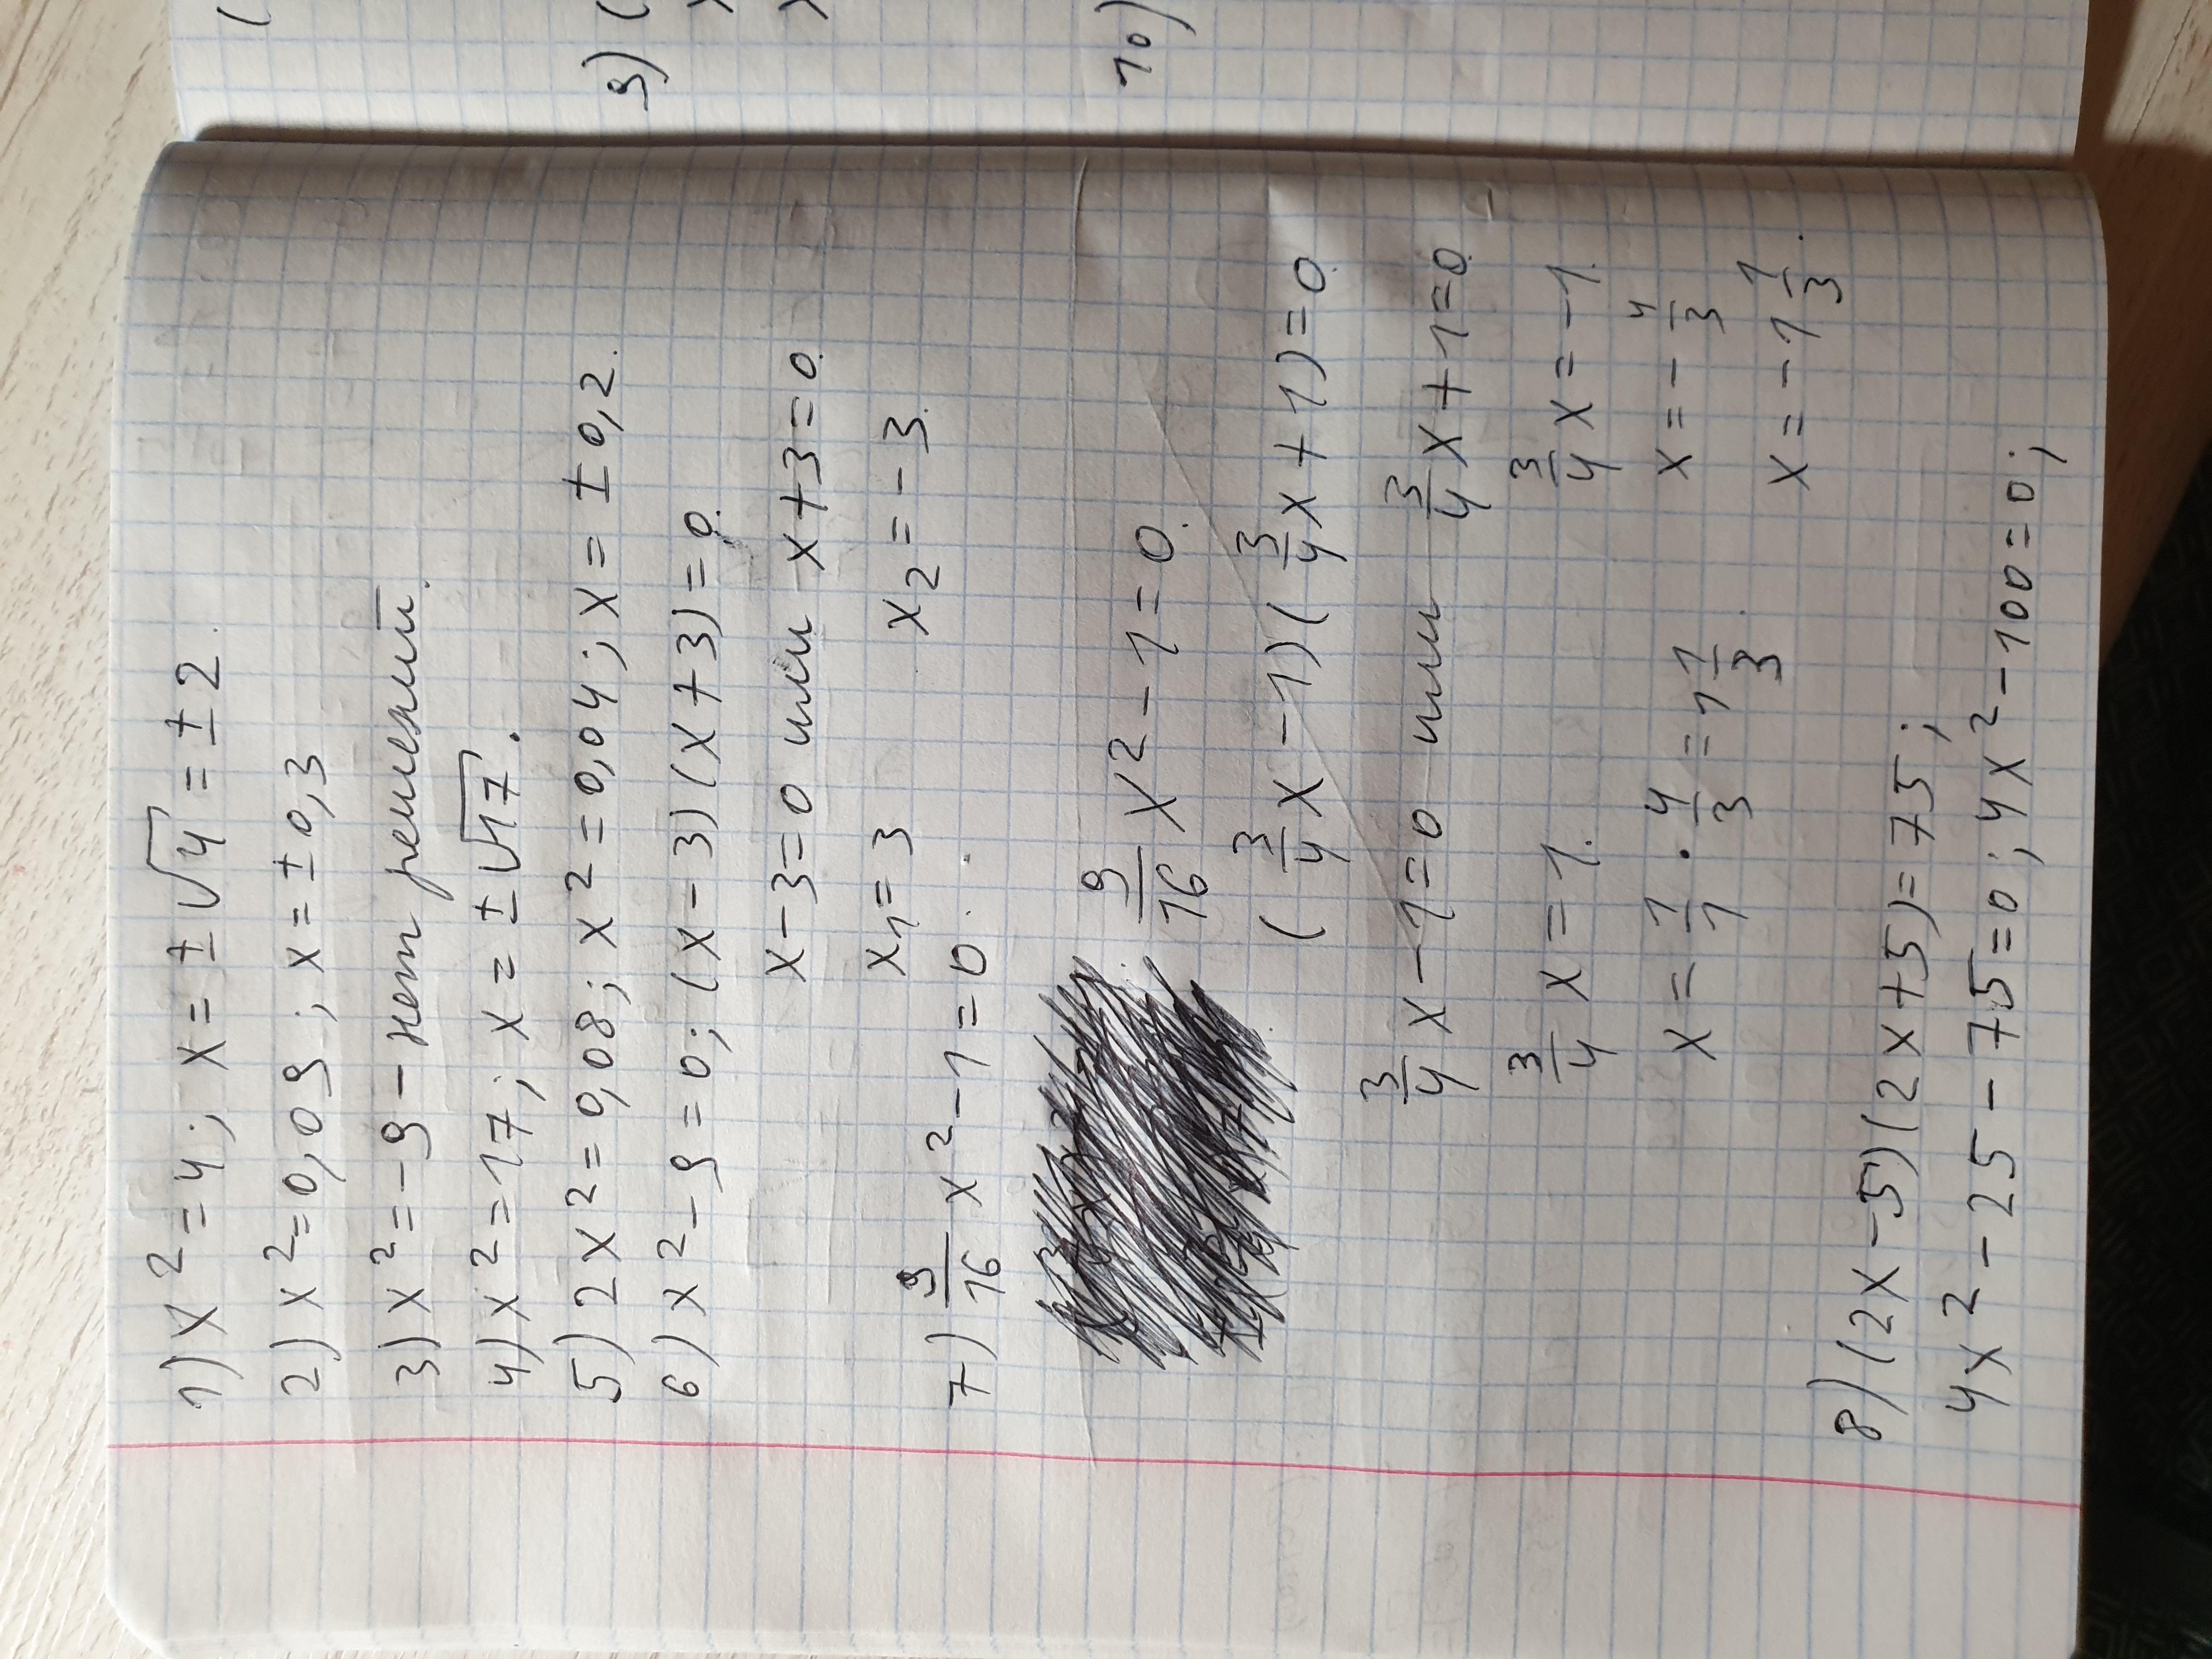 1) x² = 4; x = ±√4 = ±2.
2) x² = 0,09; x = ±0,3
3) x² = -9 - нет решений.
4) x² = 17; x = ±√17.
5) 2x² = 0,08; x² = 0,04; x = ±0,2.
6) x² - 9 = 0; (x - 3)(x + 3) = 0.
x - 3 = 0 или x + 3 = 0.
x₁ = 3 x₂ = -3.
7) 9/16 x² - 1 = 0.
9/16 x² - 1 = 0.
(3/4 x - 1)(3/4 x + 1) = 0.
3/4 x - 1 = 0 или 3/4 x + 1 = 0.
3/4 x = 1. 3/4 x = -1.
x = 1/1 · 4/3 = 1 1/3. x = - 4/3
x = -1 1/3.
8) (2x - 5)(2x + 5) = 75;
4x² - 25 - 75 = 0; 4x² - 100 = 0;
9) (
10)